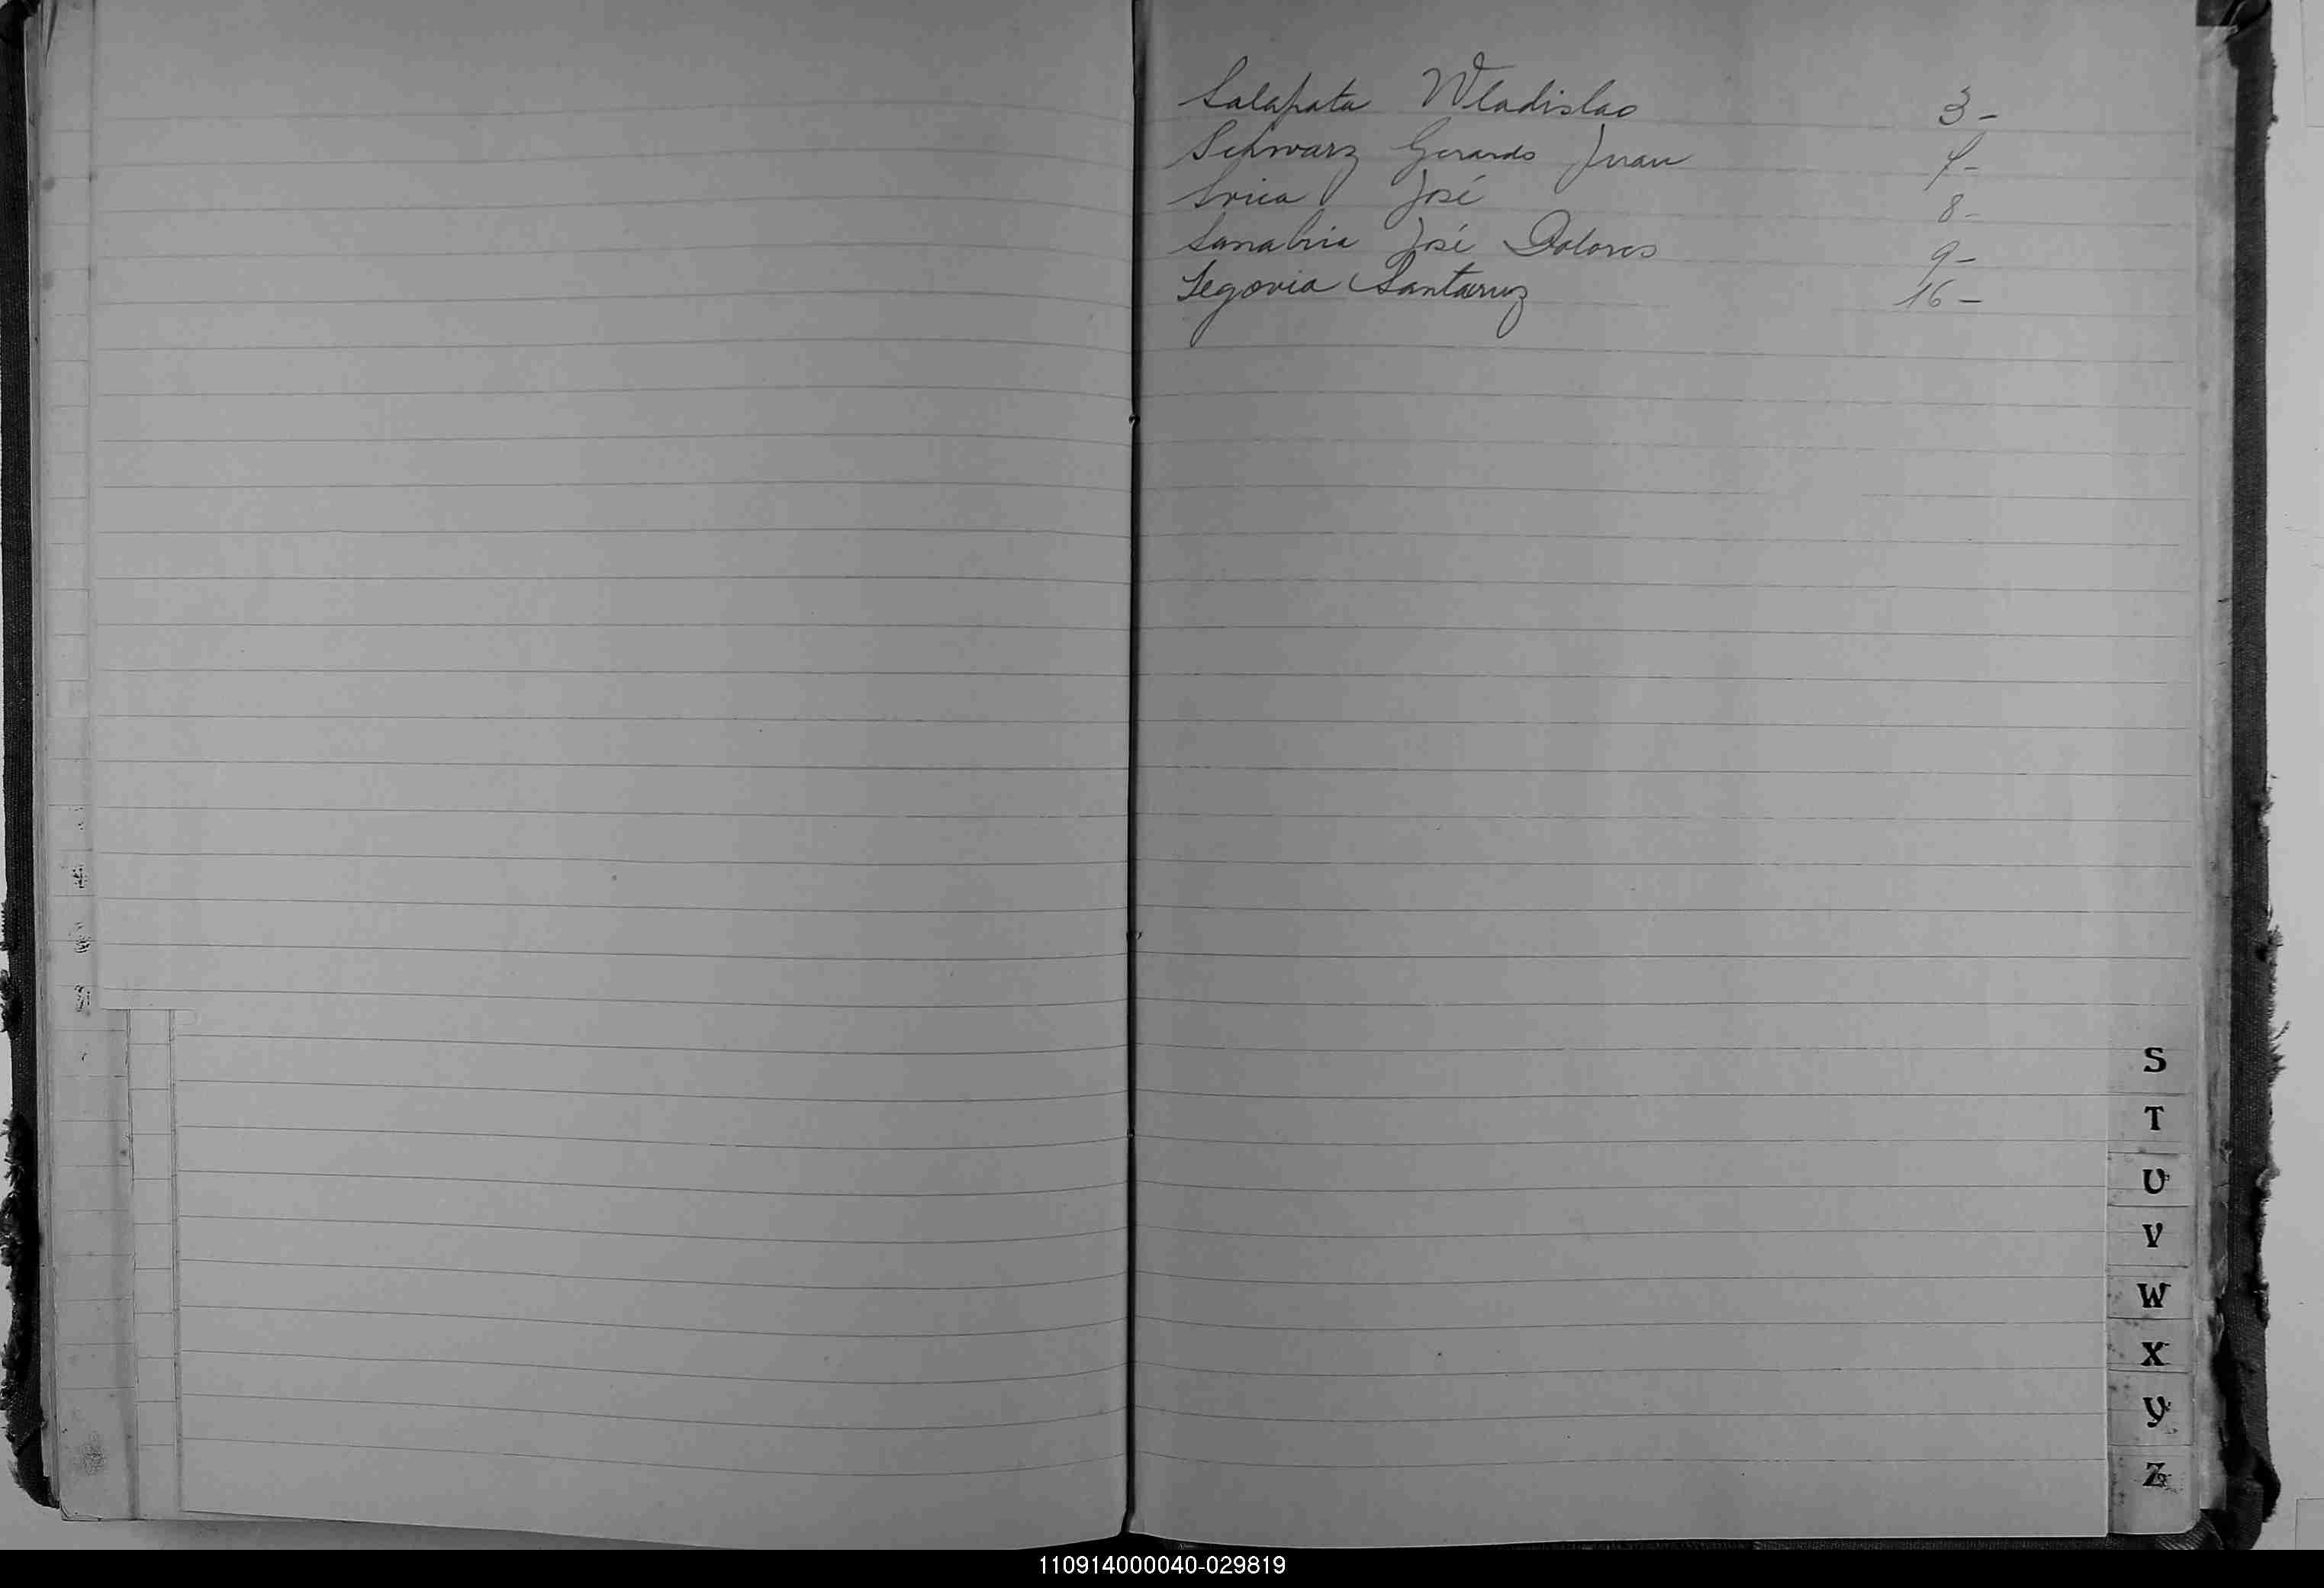 Salapata Wladislao 3-
Schwarz Gerardo Juan 7-
José 8-
Sanabria José Dolores 9-
Segovia Santacruz 16-
S
T
U
V
W
X
Y
Z
110914000040-029819